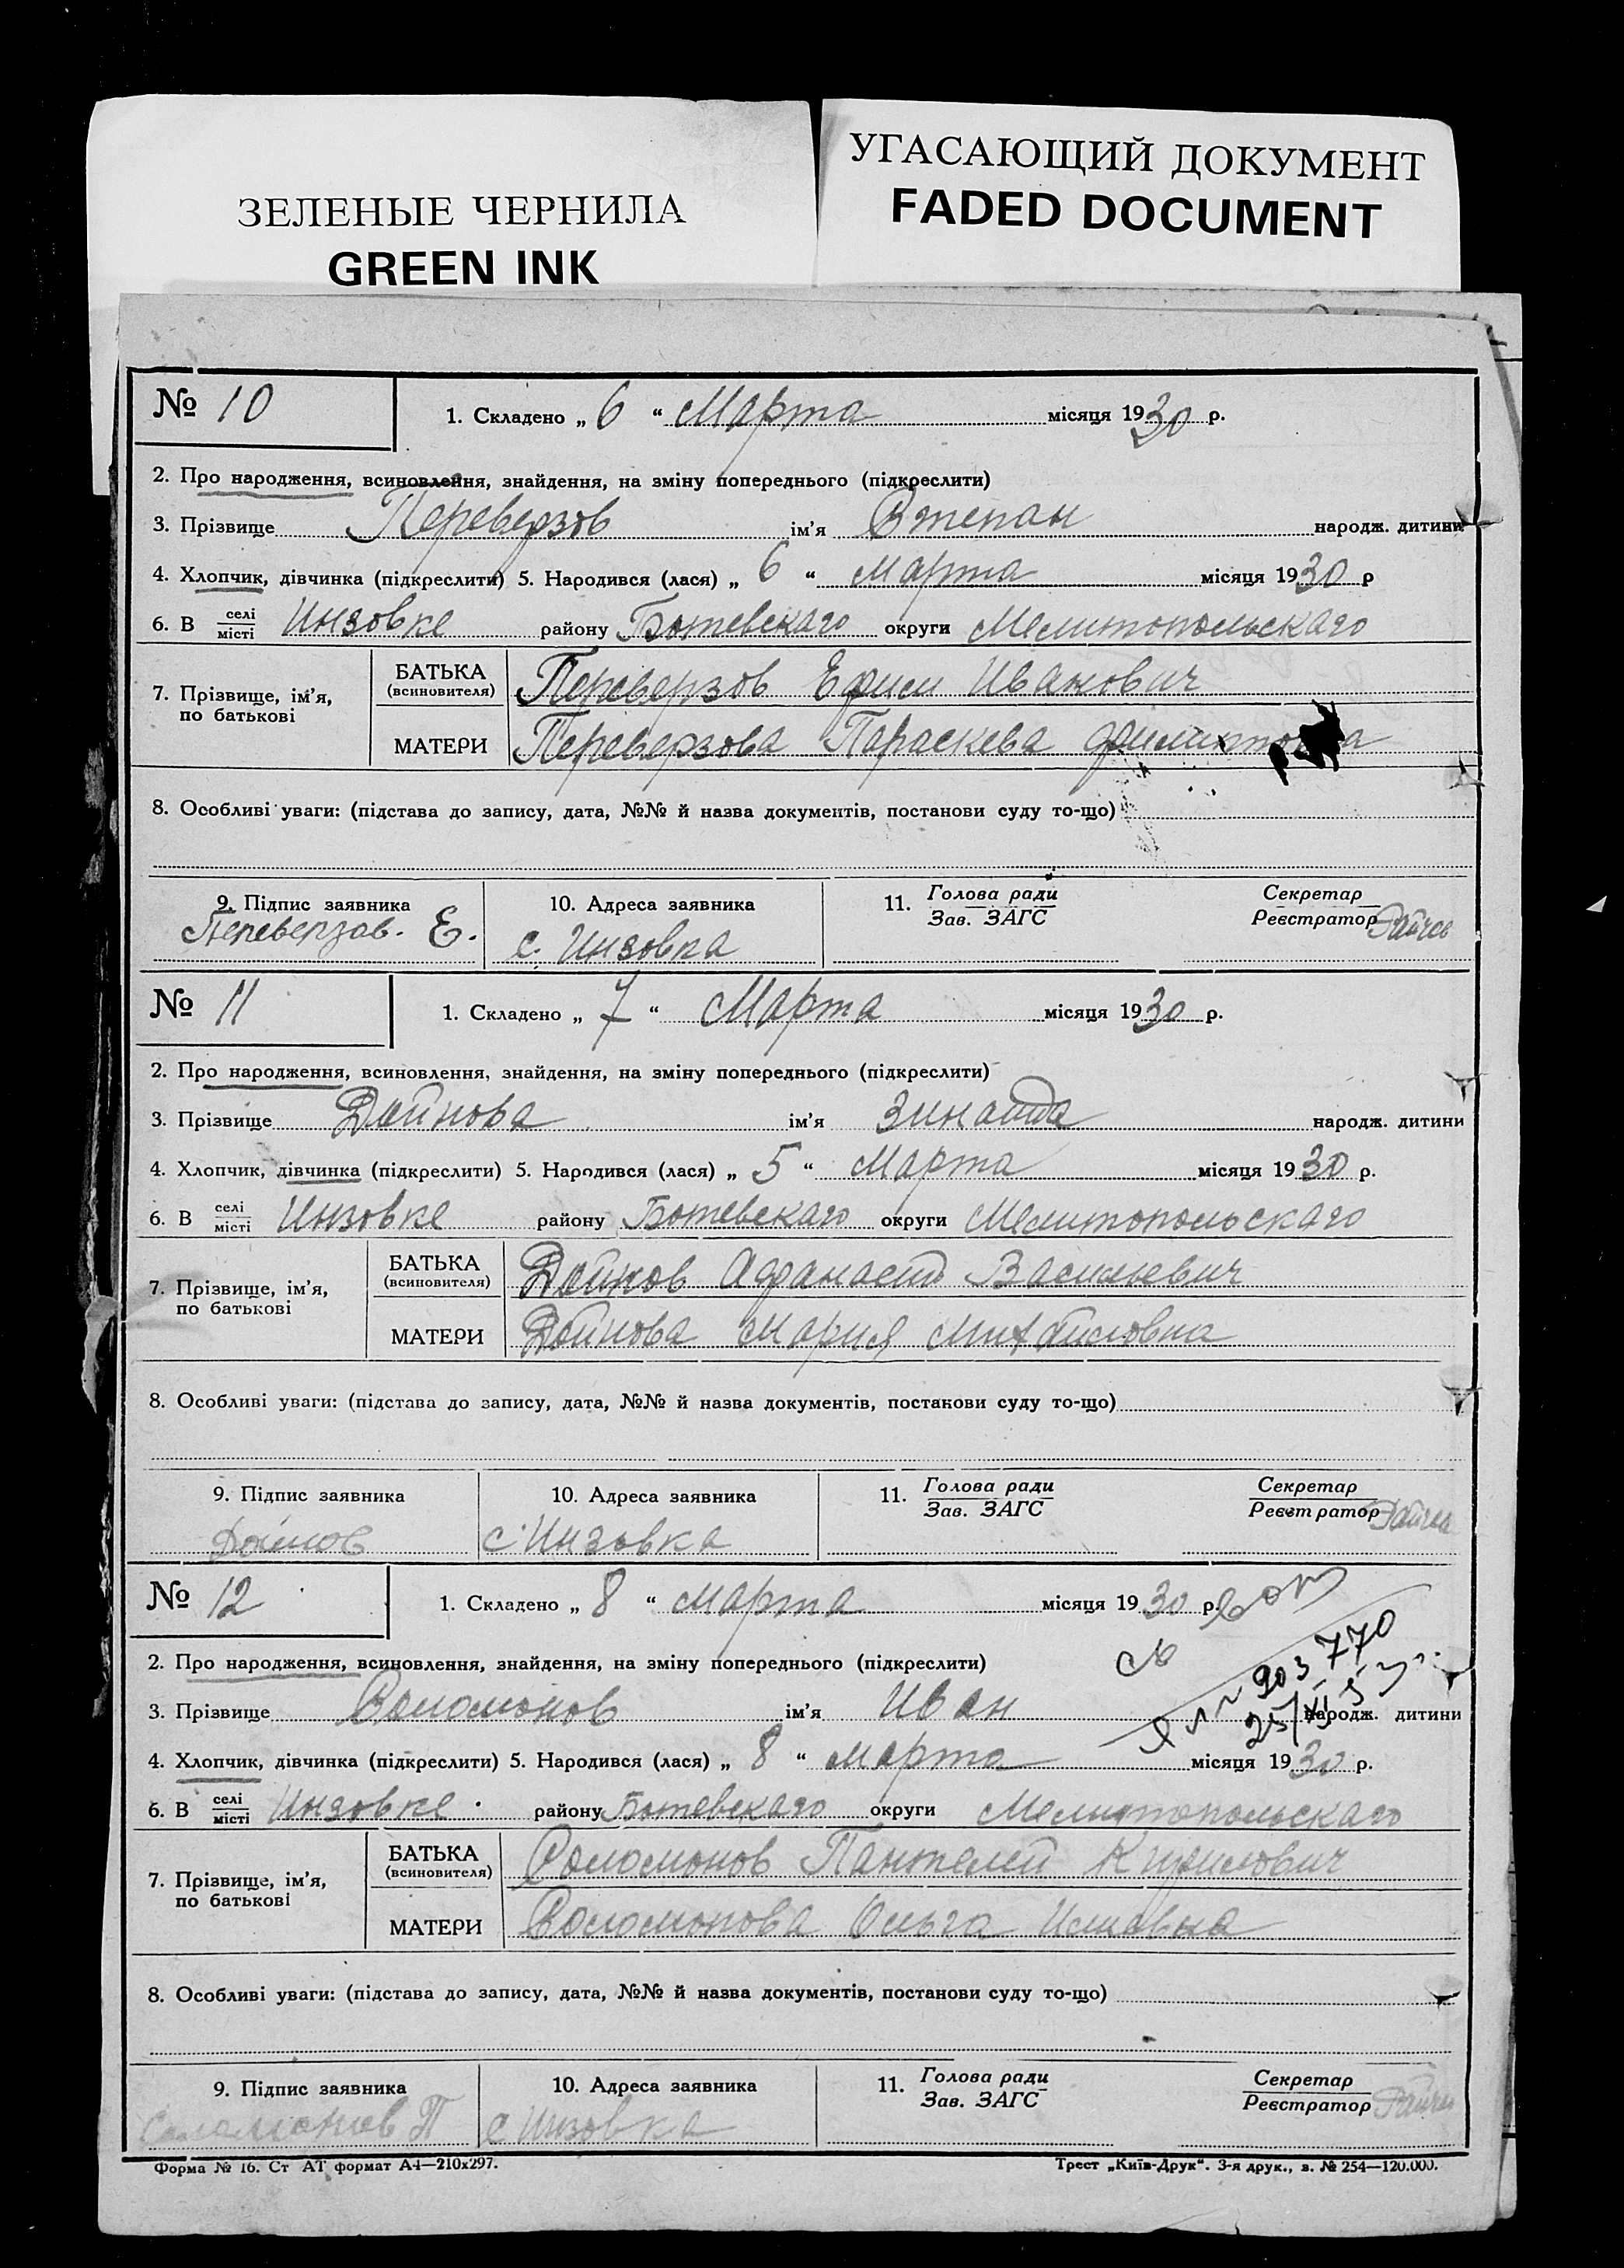 ЗЕЛЕНЫЕ ЧЕРНИЛА
GREEN INK
УГАСАЮЩИЙ ДОКУМЕНТ
FADED DOCUMENT
№ 10
1. Складено „ 6 “ Марта місяця 1930 р.
2. Про народження, всиновлення, знайдення, на зміну попереднього (підкреслити)
3. Прізвище Переверзов ім’я Степан народж. дитини
4. Хлопчик, дівчинка (підкреслити) 5. Народився (лася) „ 6 “ Марта місяця 1930 р
6. В селі/місті Инзовке району Ботевскаго округи Мелитопольскаго
7. Прізвище, ім’я, по батькові
БАТЬКА (всиновителя) Переверзов Ефим Иванович
МАТЕРИ Переверзова Параскева
8. Особливі уваги: (підстава до запису, дата, №№ й назва документів, постанови суду то-що)
9. Підпис заявника 10. Адреса заявника 11. Голова ради/Зав. ЗАГС Секретар/Реєстратор
Переверзов. Е. с. Инзовка
№ 11
1. Складено „ 7 “ Марта місяця 1930 р.
2. Про народження, всиновлення, знайдення, на зміну попереднього (підкреслити)
3. Прізвище Дойнова ім’я Зинаида народж. дитини
4. Хлопчик, дівчинка (підкреслити) 5. Народився (лася) „ 5 “ Марта місяця 1930 р.
6. В селі/місті Инзовке району Ботевскаго округи Мелитопольскаго
7. Прізвище, ім’я, по батькові
БАТЬКА (всиновителя) Дойнов Афанасий Васильевич
МАТЕРИ Дойнова Мария Михайловна
8. Особливі уваги: (підстава до запису, дата, №№ й назва документів, постанови суду то-що)
9. Підпис заявника 10. Адреса заявника 11. Голова ради/Зав. ЗАГС Секретар/Реєстратор
Дойнов с. Инзовка
№ 12
1. Складено „ 8 “ марта місяця 1930 р.
2. Про народження, всиновлення, знайдення, на зміну попереднього (підкреслити)
903770
3. Прізвище Соломонов ім’я Иван народж. дитини
4. Хлопчик, дівчинка (підкреслити) 5. Народився (лася) „ 8 “ марта місяця 1930 р.
6. В селі/місті Инзовке району Ботевскаго округи Мелитопольскаго
7. Прізвище, ім’я, по батькові
БАТЬКА (всиновителя) Соломонов Пантелей Кирилович
МАТЕРИ Соломонова Ольга
8. Особливі уваги: (підстава до запису, дата, №№ й назва документів, постанови суду то-що)
9. Підпис заявника 10. Адреса заявника 11. Голова ради/Зав. ЗАГС Секретар/Реєстратор
П с Инзовка
Форма № 16. Ст АТ формат А4—210х297.
Трест „Київ-Друк“. 3-я друк., з. № 254—120.000.